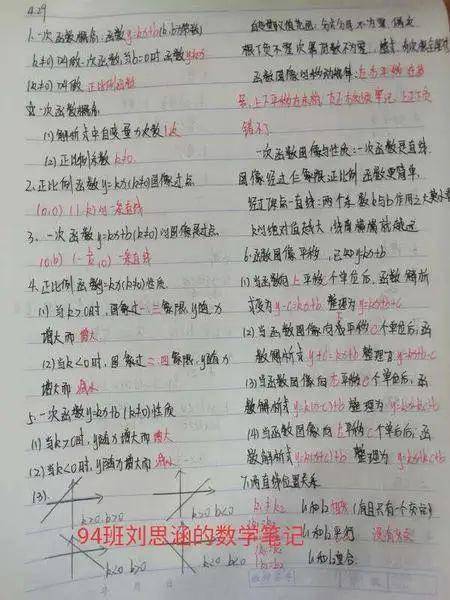 4.29
1.一次函数概念:函数y=kx+b(k,b为常数,
k≠0)叫做一次函数.当b=0时函数y=kx
(k≠0)叫做 正比例函数
一次函数概念
(1)解析式中自变量为次数1次
(2)正比例系数 k≠0.
2.正比例函数y=kx(k≠0)图像过点
(0,0) (1,k)的一条直线
3.一次函数y=kx+b(k≠0)的图像是过点
(0,b) 一条直线
4.正比例函数y=kx(k≠0)性质
(1)当k>0时,图像过一.三象限,y随x
增大而 增大
(2)当k<0时,图像过二.四象限,y随x
增大而 减小
5.一次函数y=kx+b(k≠0)性质
(1)当k>0时,y随x增大而增大
(2)当k<0时,y随x增大而减小
(3).
k>0 b>0
k>0 b<0
k<0 b>0
k<0 b<0
自变量取值范围:分式分母不为零,偶次
根下负不要
函数图像的移动规律:
错不了
一次函数图像与性质:一次函数是直线
图像经过仨象限;正比例函数更简单,
经过原点一直线;两个系数k与b作用之大莫小看
k的绝对值越大,线离横轴就越远
6.函数图像平移,已知y=kx+b
(1)当函数向上平移c个单位后,函数解析
式变为y-c=kx+b 整理为y=kx+b+c
(2)当函数图像向下平移c个单位后,函
数解析式y+c=kx+b 整理为y=kx+b-c
(3)当函数图像向右平移c个单位后,函
数解析式y=k(x-c)+b 整理为y=kx-kc+b
(4)当函数图像向左平移c个单位后,函
数解析式y=k(x+c)+b 整理为y=kx+kc+b
7.两直线位置关系
k1≠k2 l1和l2相交(有且只有一个交点)
l1和l2平行 没有交点
b1=b2 l1和l2重合
94班刘思涵的数学笔记